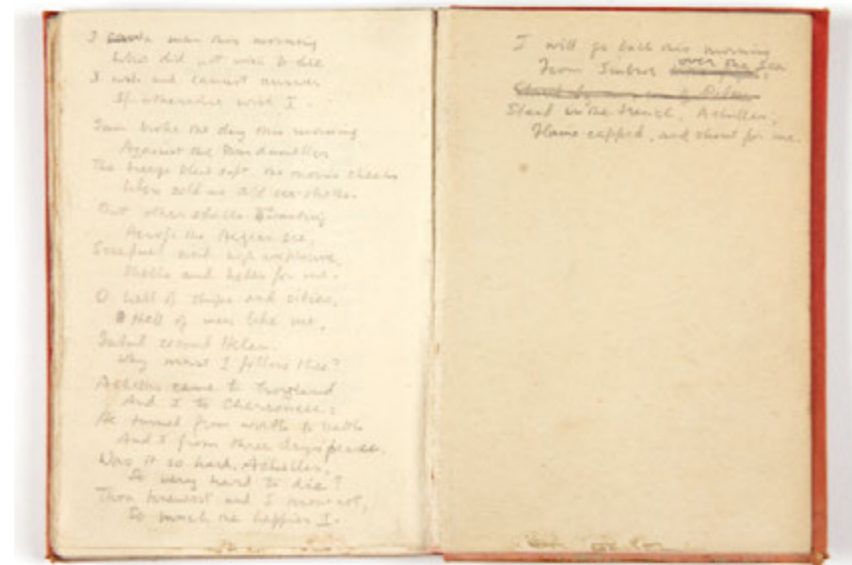 I saw a man this morning
Who did not wish to die
I ask and cannot answer
If otherwise wish I.
Fair broke the day this morning
Against the Dardanelles
The breeze blew soft, the morn's cheeks
Were cold as cold sea-shells
But other shells are waiting
Across the Aegean sea,
Shrapnel and high explosive,
Shells and hells for me.
O hell of ships and cities,
Hell of men like me,
Fatal second Helen,
Why must I follow thee?
Achilles came to Troyland
And I to Chersonese:
He turned from wrath to battle
And I from three days peace.
Was it so hard, Achilles,
So very hard to die?
Thou knewest and I know not,
So much the happier I.
I will go back this morning
From Imbros over the sea
Stand in the trench, Achilles,
Flame capped, and shout for me.